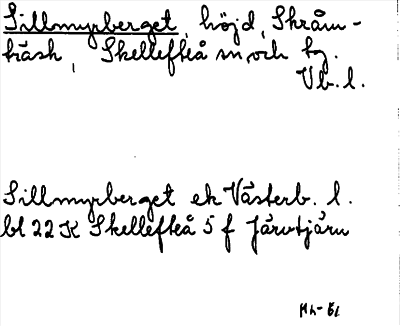 Sillmyrberget, höjd, Skråm-
träsk, Skellefteå sn och tg.
Vb. l.
Sillmyrberget ek Västerb. l.
bl 22 K Skellefteå 5 f Järvtjärn